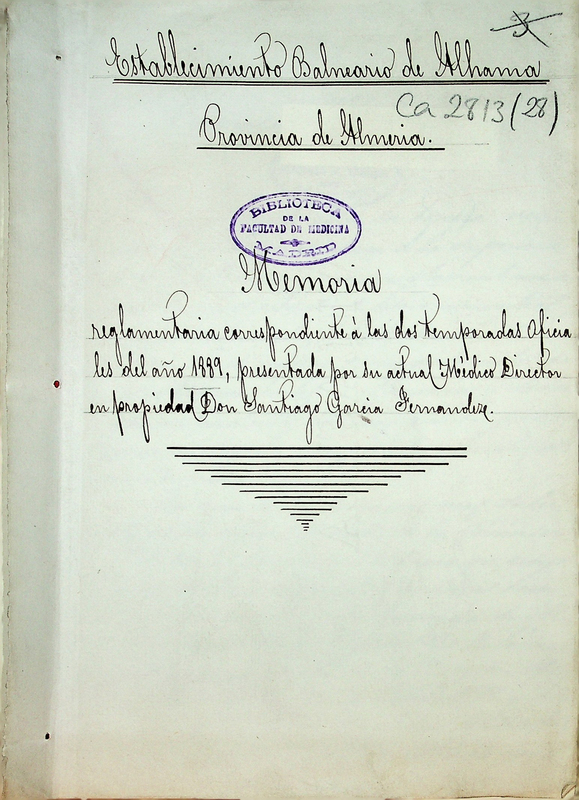 3
Establecimiento Balneario de Alhama
Ca 2813 (28)
Provincia de Almeria.
BIBLIOTECA
DE LA
FACULTAD DE MEDICINA
MADRID
Memoria
reglamentaria correspondiente à las dos temporadas Oficia
les del año 1889, presentada por su actual Mèdico Director
en propiedad Don Santiago Garcia Fernandez.